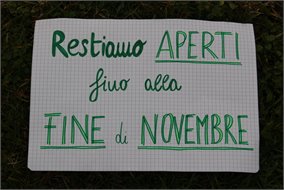 Restiamo APERTI
fino alla
FINE di NOVEMBRE